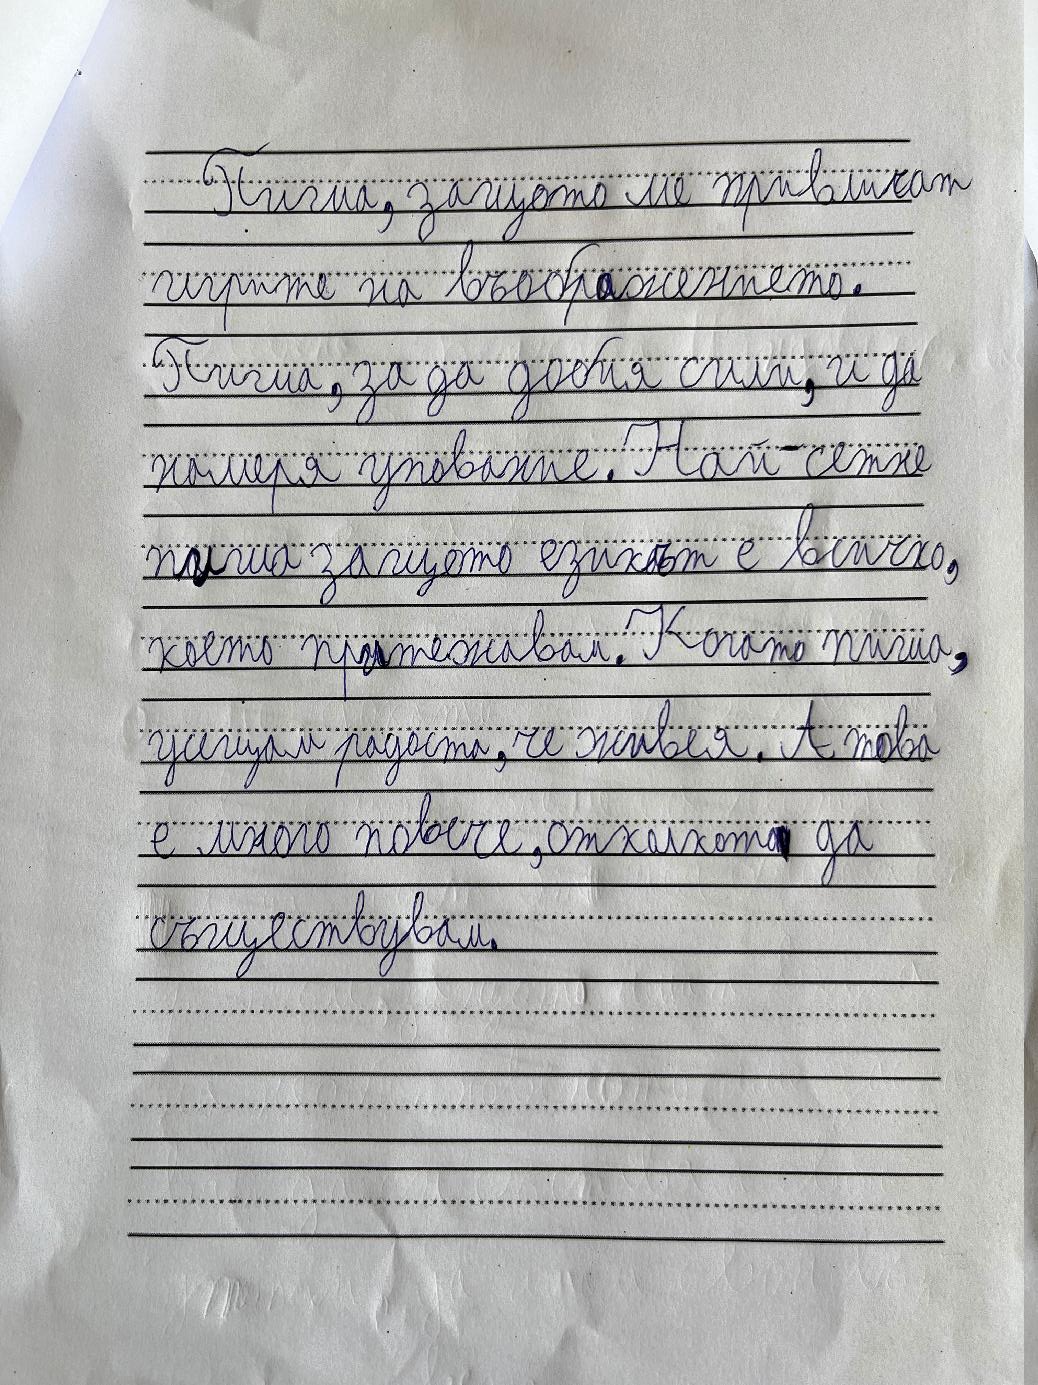 Пиша, защото ме привличат
игрите на въображението.
Пиша, за да добия сили, и да
намеря упование. Най-сетне
пиша защото езикът е всичко,
което притежавам. Когато пиша,
усещам радостта, че живея. А това
е много повече, отколкото да
съществувам.